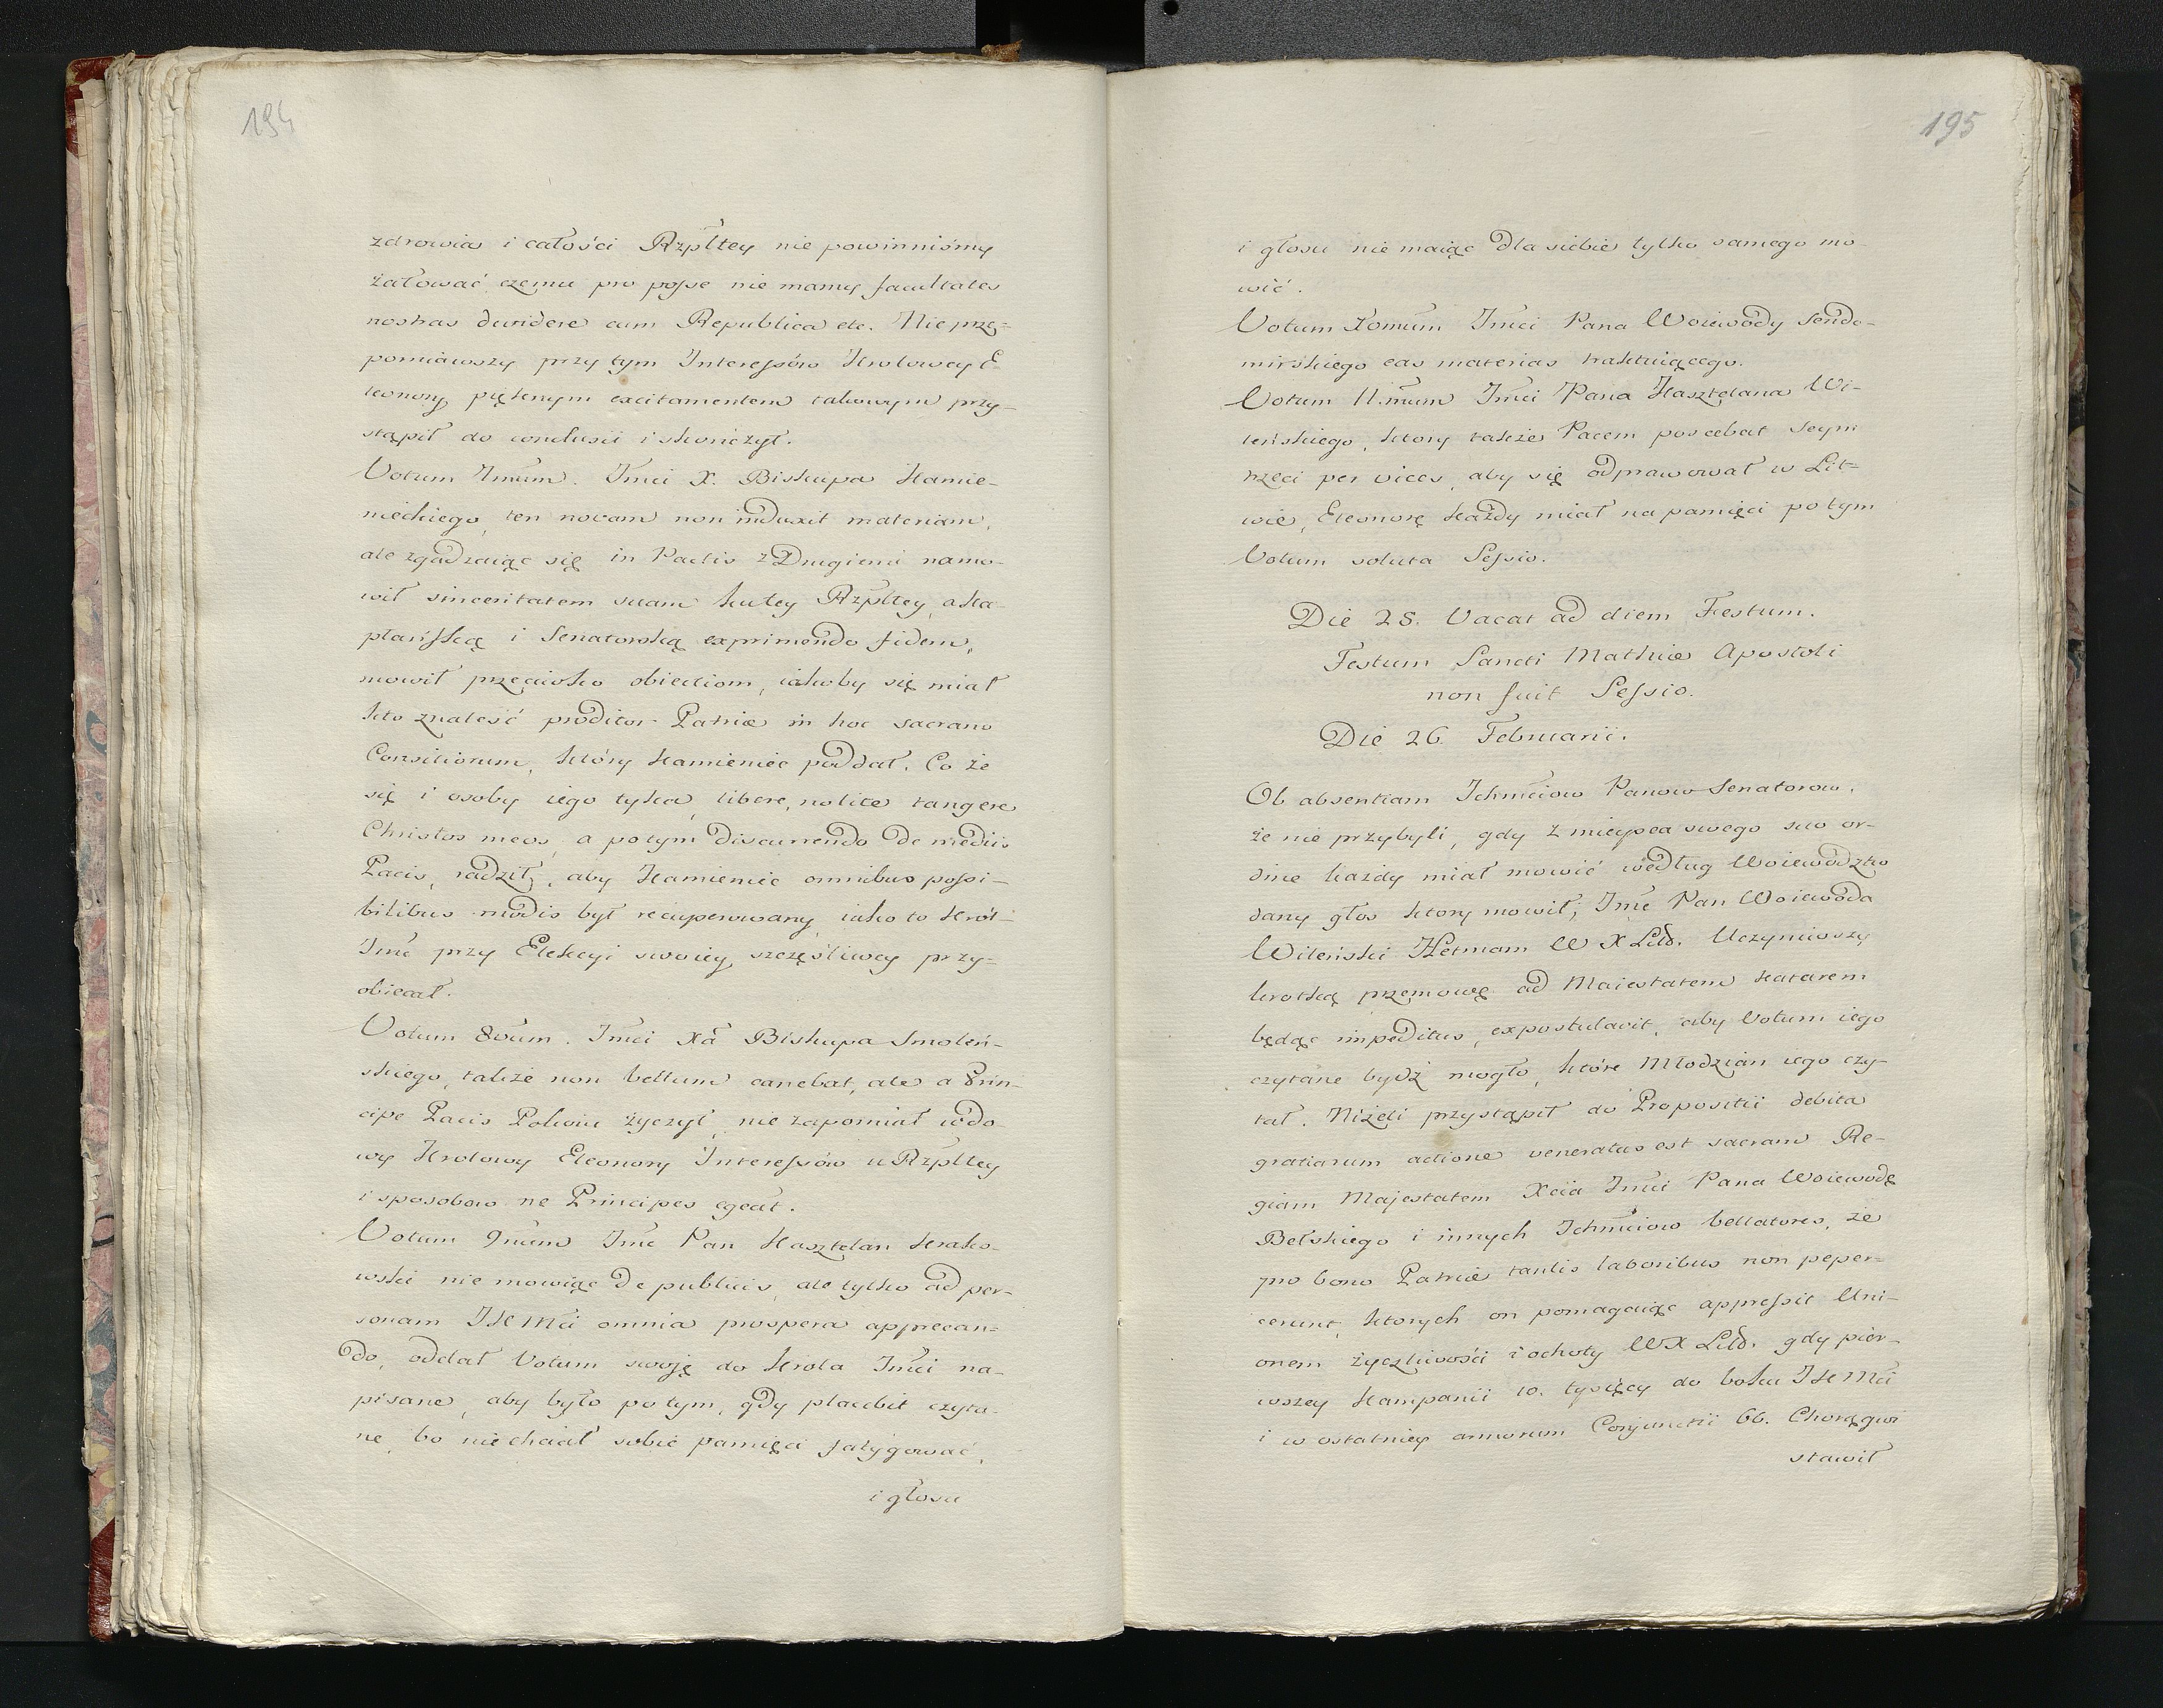 194
zdrowia i całości Rzpltey nie powinniśmy
żałować czemu pro posse nie mamy facultates
nostras dividere cum Republica etc. Nie prze=
pomniawszy przy tym Interessów Krolowey E=
leonory, pięknym excitamentem takowym przy-
stąpił do conclusii i skończył.
Votum 7mum. Jmci X. Biskupa Kamie-
nieckiego, ten novam non induxit materiam,
ale zgadzaiąc się in Pactis z Drugiemi namo-
wił sinceritatem suam ku tey Rzpltey, a Ka-
płańską i Senatorską exprimendo fidem,
mowił przeciwko obiectiom, iakoby się miał
kto znaleść proditor Patriæ in hoc sacrario
Consiliorum, który Kamieniec poddał. Co że
się i osoby iego tyka, libere, nolite tangere
Christos meos, a potym discurrendo de mediis
Pacis, radził, aby Kamieniec omnibus possi-
bilibus modis był recuperowany, iako to Krol-
Jmć przy Elekcyi swoiey szczęśliwey przy-
obiecał.
Votum 8vum. Jmci Xa Biskupa Smoleń-
skiego, także non bellum canebat, ale a Prin-
cipe Pacis Pokoiu życzył, nie zapomiał wdo-
wy Krolowy Eleonory Interessów u Rzpltey
i sposobow ne Principes egeat.
Votum 9num Jmć Pan Kasztelan Krako-
wski nie mowiąc de publicis, ale tylko ad per-
sonam JKMci omnia prospera apprecan-
do, oddał Votum swoję do Krola Jmci na-
pisane, aby było potym, gdy placebit czyta-
ne, bo nie chciał sobie pamięci fatygować,
i głosu
195
i głosu nie maiąc dla siebie tylko samego mo-
wić.
Votum Xomum Jmci Pana Woiewody Sendo-
mirskiego eas materias traktuiącego.
Votum 11.mum Jmci Pana Kasztelana Wi-
leńskiego, ktory także Pacem poscebat Seym
trzeci per vices, aby się odprawował w Lit=
wie, Eleonorę każdy miał na pamięci po tym
Votum soluta Sessio.
Die 25. Vacat ad diem Festum.
Festum Sancti Mathiæ Apostoli
non fuit Sessio.
Die 26 Februarii.
Ob absentiam Ichmciow Panow Senatorow,
że nie przybyli, gdy z mieysca swego suo or-
dine każdy miał mowić według Woiewodztw
dany głos ktory mowił, Jmć Pan Woiewoda
Wileński Hetman W X Litt. Uczyniwszy
krotką przemowę ad Maiestatem katarem
będąc impeditus, expostulavit, aby Votum iego
czytane bydź mogło, które Młodzian iego czy-
tał. Niżeli przystąpił do Propositii debita
gratiarum actione veneratus est sacram Re-
giam Majestatem Xcia Jmci Pana Woiewodę
Bełskiego i innych Ichmciow bellatores, że
pro bono Patriæ tantis laboribus non peper-
cerunt, ktorych on pomagaiąc appressit Uni-
onem życzliwości i ochoty WX Litt. gdy pier-
wszey Kampanii 10. tysięcy do boku JKMci
i w ostatniey armorum Conjunctii 66. Chorągwi
stawił